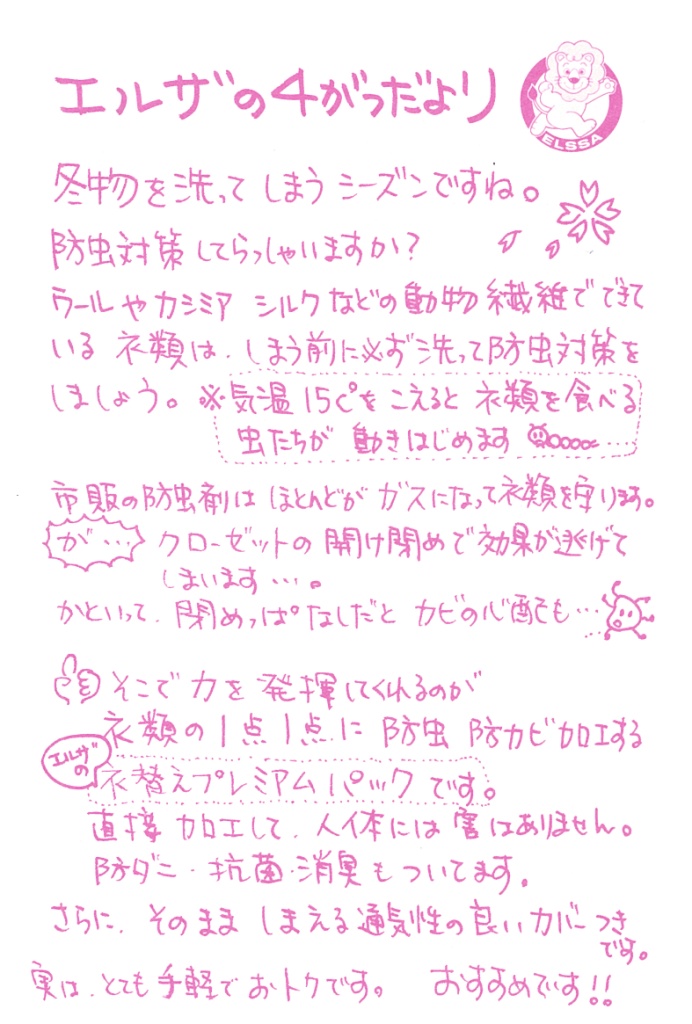 エルザの4がつだより
ELSSA
冬物を洗って しまう シーズンですね。
防虫対策 してらっしゃいますか？
ウールやカシミア シルクなどの動物繊維でできて
いる 衣類は、しまう前に必ず洗って防虫対策を
しましょう。※気温15℃をこえると 衣類を食べる
虫たちが 動きはじめます
市販の防虫剤は ほとんどが ガスになって衣類を守ります。
が… クローゼットの 開け閉めで効果が逃げて
しまいます…。
かといって、閉めっぱなしだと カビの心配も…
そこで 力を 発揮してくれるのが
衣類の1点1点に 防虫 防カビ加工する
エルザの
衣替えプレミアムパック です。
直接 加工して、人体には 害はありません。
防ダニ・抗菌・消臭も ついてます。
さらに、そのまま しまえる通気性の良いカバーつき
です。
実は、とても手軽で おトクです。 おすすめです!!